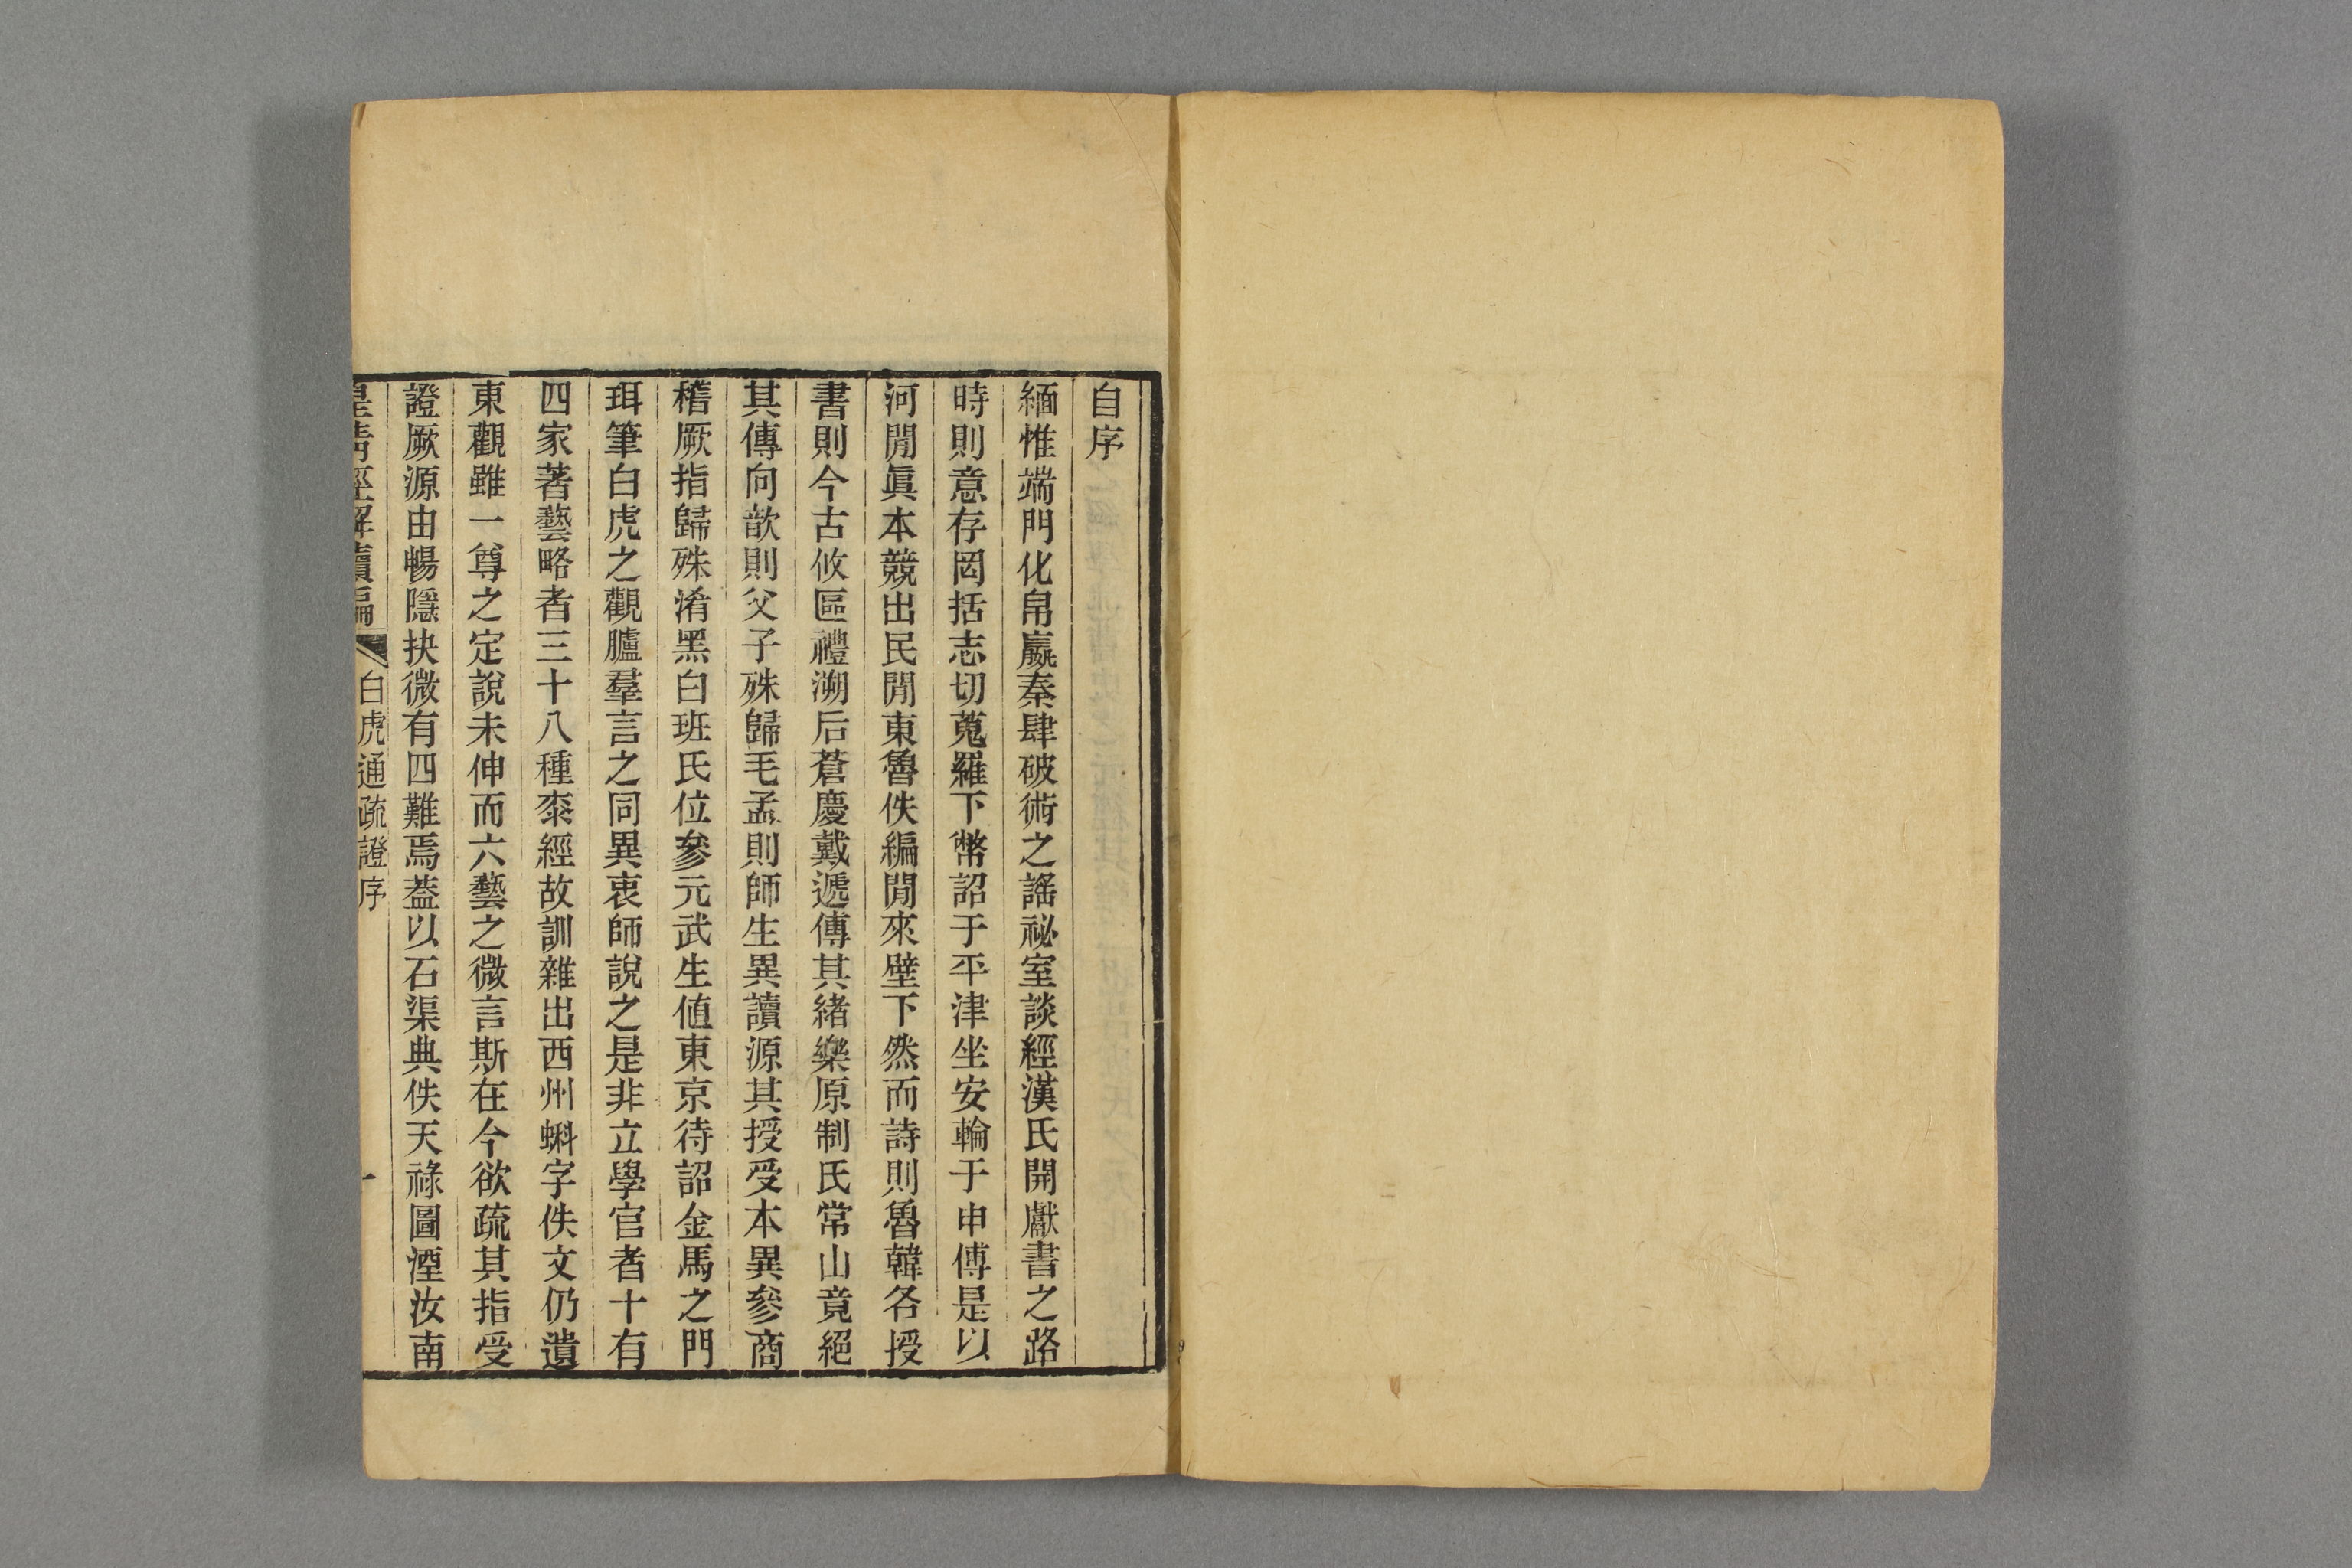 自序
緬惟端門化帛嬴秦肆破術之謠祕室談經漢氏開獻書之路
時則意存罔括志切蒐羅下幣詔于平津坐安輪于申傅是以
河閒眞本競出民閒東魯佚編閒來壁下然而詩則魯韓各授
書則今古攸區禮溯后蒼慶戴遞傳其緒樂原制氏常山竟絕
其傳向歆則父子殊歸毛孟則師生異讀源其授受本異參商
稽厥指歸殊淆黑白班氏位參元武生値東京待詔金馬之門
珥筆白虎之觀臚羣言之同異衷師說之是非立學官者十有
四家著藝略者三十八種桼經故訓雜出西州蝌字佚文仍遺
東觀雖一尊之定說未伸而六藝之微言斯在今欲疏其指受
證厥源由暢隱抉微有四難焉葢以石渠典佚天祿圖湮汝南
皇清經解續編
白虎通疏證序
一